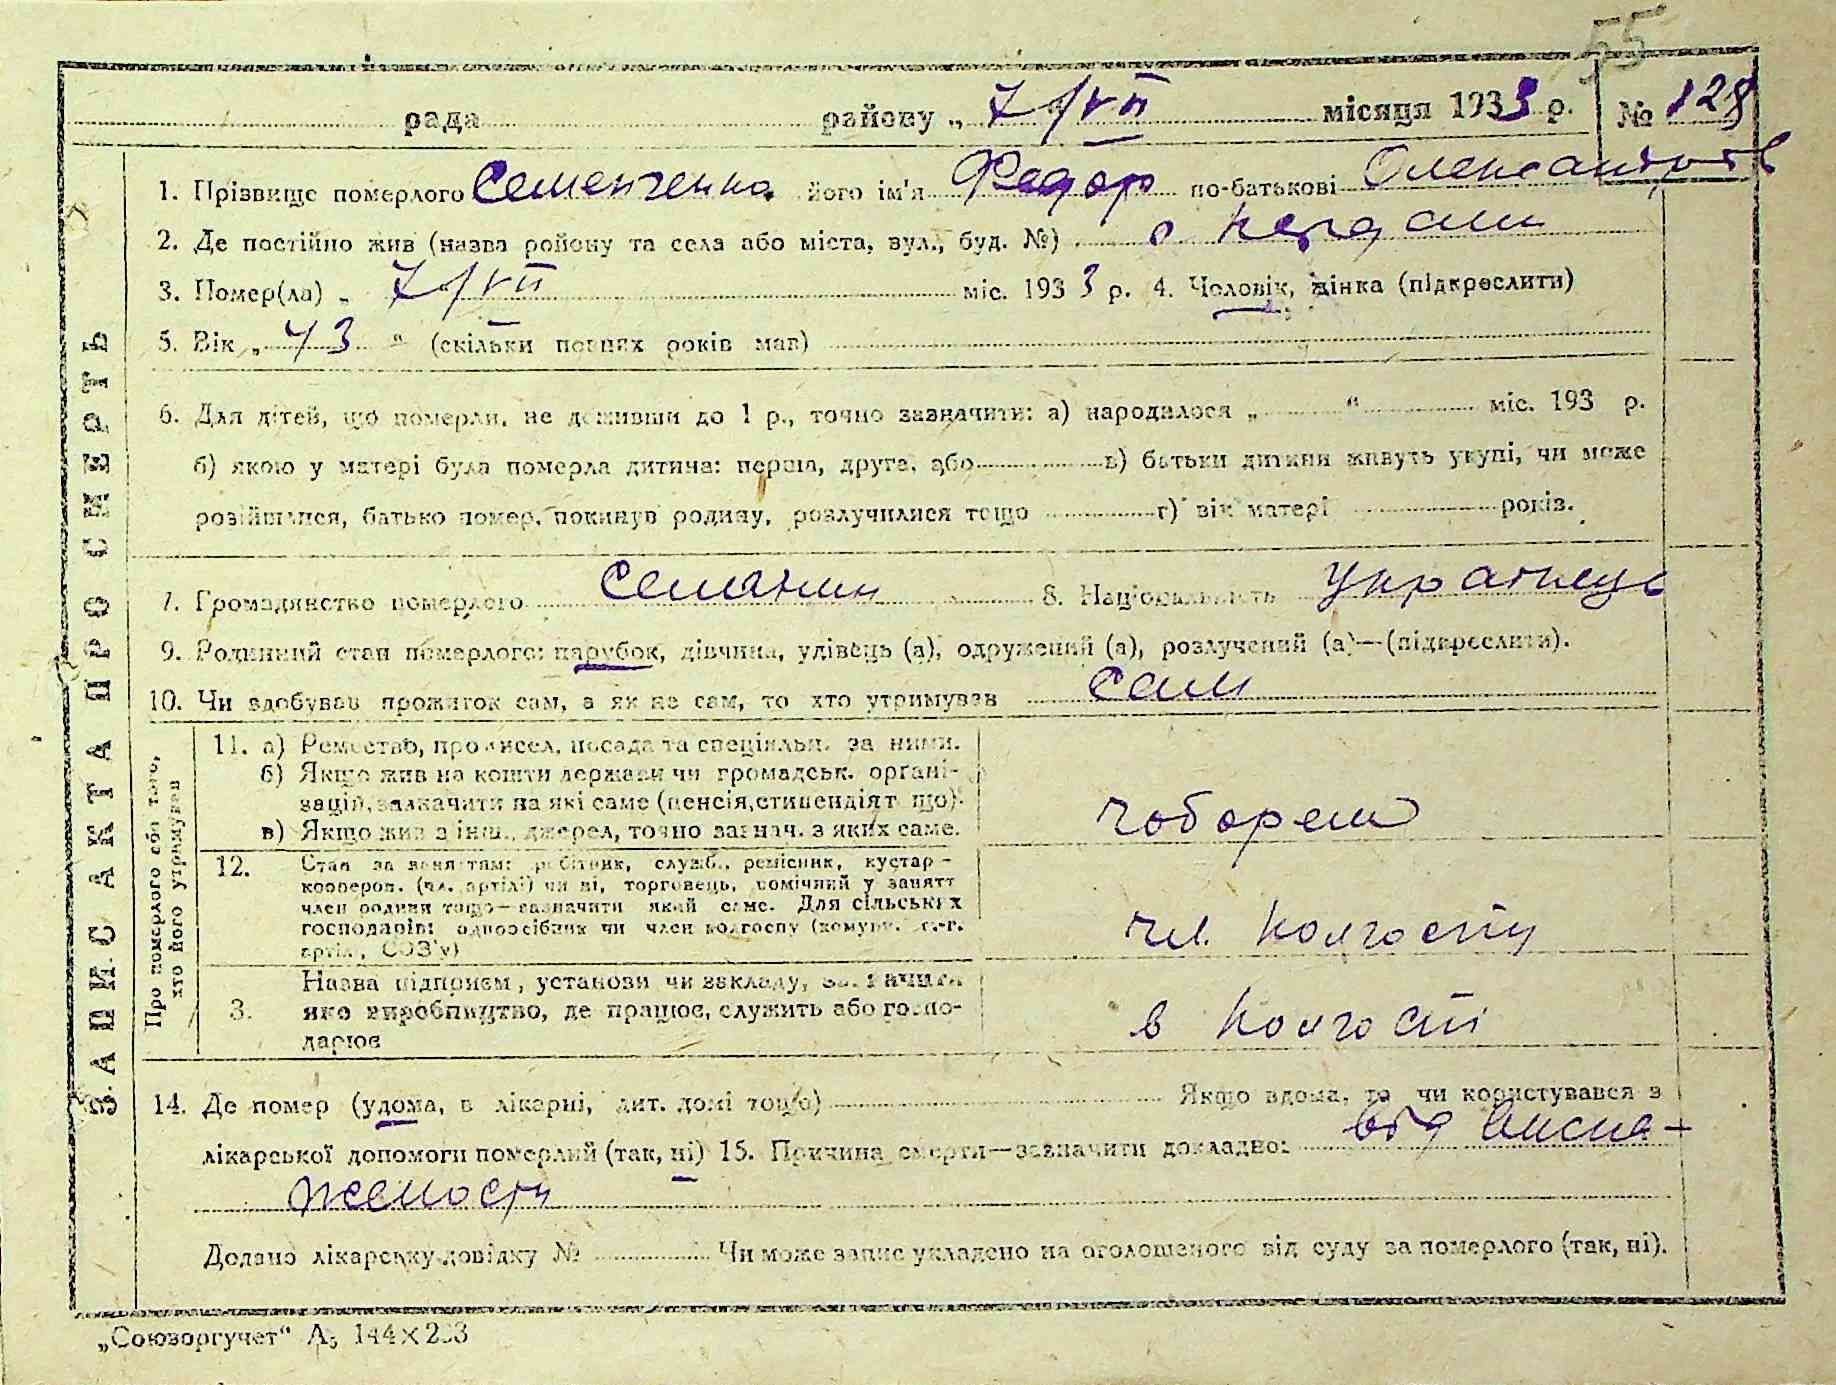 55
рада району „ 7/VII місяця 1933 р. № 128
1. Прізвище померлого Семенченко його ім'я Федор по-батькові Олександров
2. Де постійно жив (назва району та села або міста, вул., буд. №) с
3. Помер(ла) „ 7/VII міс. 1933 р. 4. Чоловік, жінка (підкреслити)
5. Вік „ 43 “ (скільки повних років мав)
6. Для дітей, що померли, не доживши до 1 р., точно зазначити: а) народилося „ “ міс. 193 р.
б) якою у матері була померла дитина: перша, друга, або в) батьки дитини живуть укупі, чи може
розійшлися, батько помер, покинув родину, розлучилися тощо г) вік матері років.
7. Громадянство померлого Селянин 8. Національність Українець
9. Родинний стан померлого: парубок, дівчина, удівець (а), одружений (а), розлучений (а)—(підкреслити).
10. Чи здобував прожиток сам, а як не сам, то хто утримував сам
ЗАПИС АКТА ПРО СМЕРТЬ
Про померлого або того, хто його утримував
11. а) Ремество, промисел, посада та спеціяльн. за ними.
б) Якщо жив на кошти держави чи громадськ. органі-
зацій, зазначити на які саме (пенсія, стипендія т що).
в) Якщо жив з інш. джерел, точно зазнач. з яких саме.
чоборем
12. Стан за заняттам: робітник, служб., ремісник, кустар-
кооперов. (чл. артілі) чи ні, торговець, помічний у занятт
член родини тощо—зазначити який саме. Для сільських
господарів: одноосібник чи член колгоспу (комуни, с.-г.
артіл, СОЗ'у)
чл. колгоспу
3. Назва підприєм, установи чи закладу, зазначити
яке виробництво, де працює, служить або госпо-
дарює
в колгоспі
14. Де помер (удома, в лікарні, дит. домі тощо) Якщо вдома, то чи користувався з
лікарської допомоги померлий (так, ні) 15. Причина смерти—зазначити докладно: від висна-
жености
Додано лікарську довідку № Чи може запис укладено на оголошеного від суду за померлого (так, ні).
„Союзоргучет“ А5 144×203